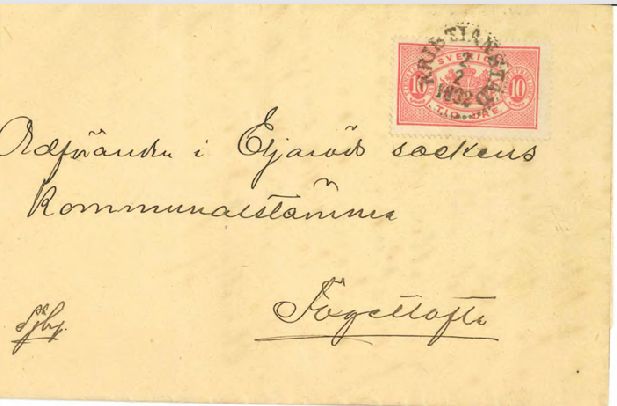 KRISTIANSTAD
2
2
1892
SVERIGE
10 10
TIO ÖRE
Ordföranden i Eljaröds sockens
Kommunalstämma
Fågeltofta